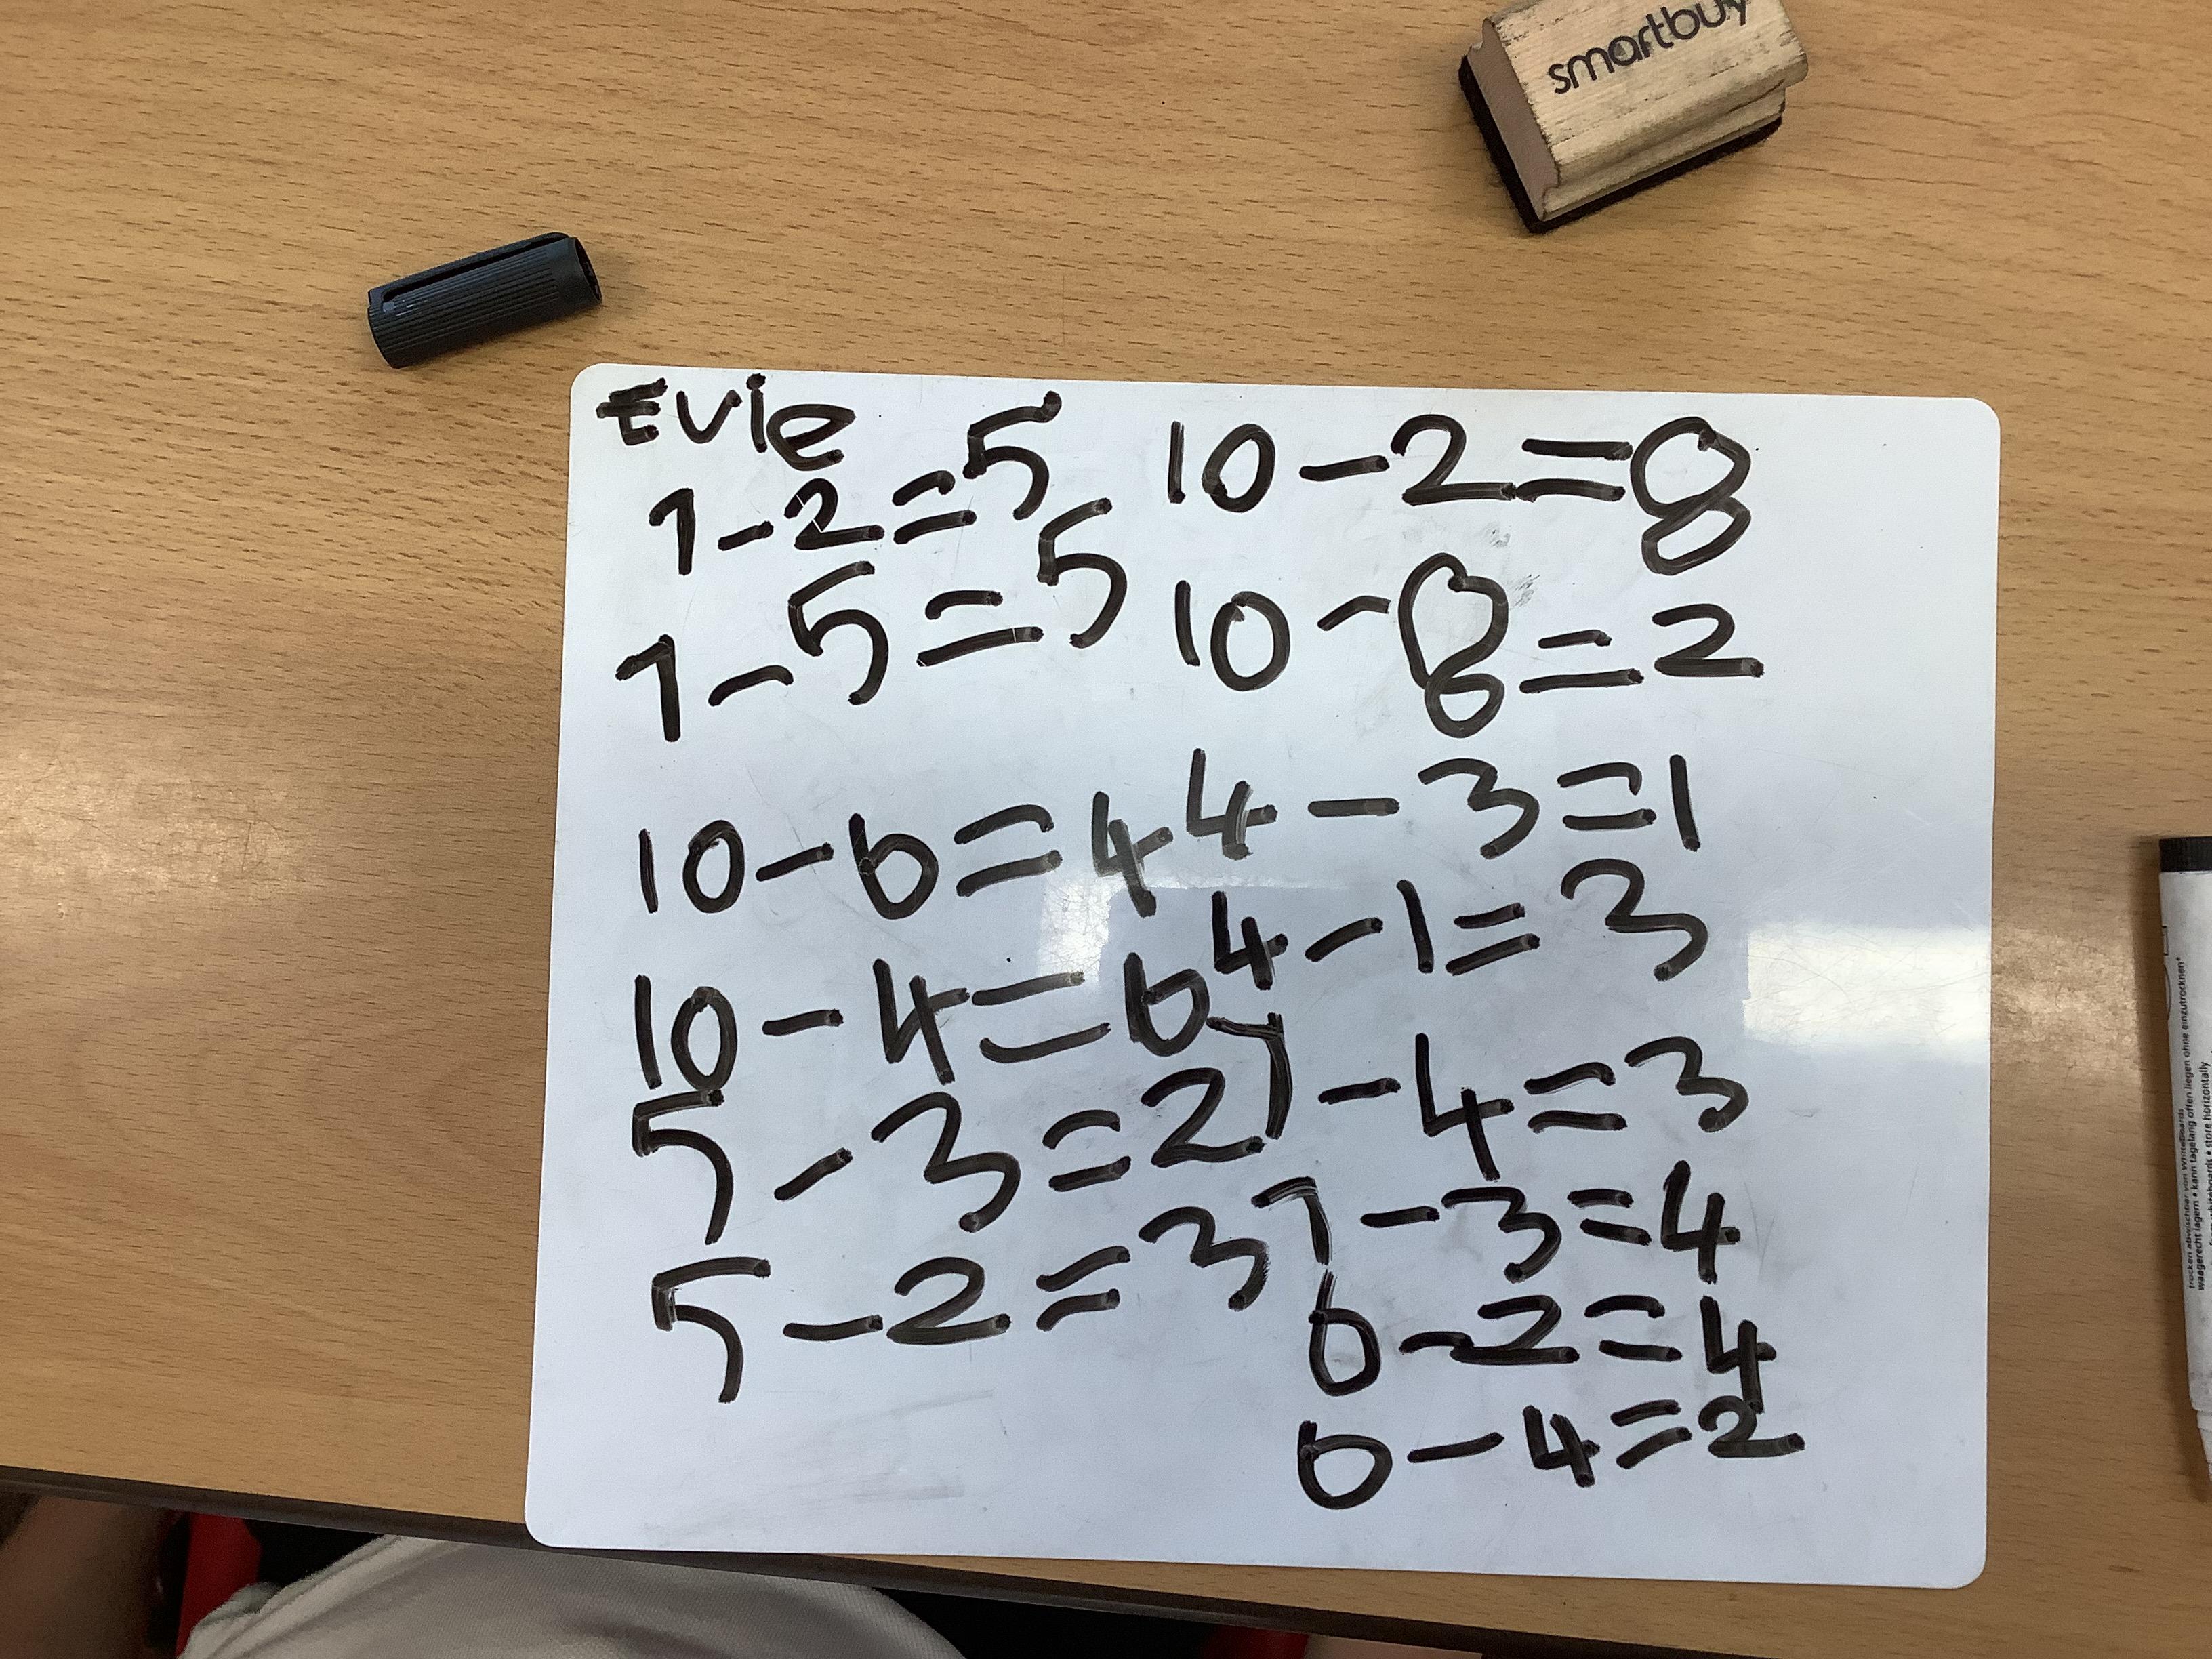 smartbuy
Evie
7-2=5
7-5=5
10-6=4
10-4=6
5-3=2
5-2=3
10-2=8
10-8=2
4-3=1
4-1=3
7-4=3
7-3=4
6-2=4
6-4=2
trocken abwischbar von Whiteboards
waagerecht lagern • kann tagelang offen liegen ohne einzutrocknen*
• store horizontally